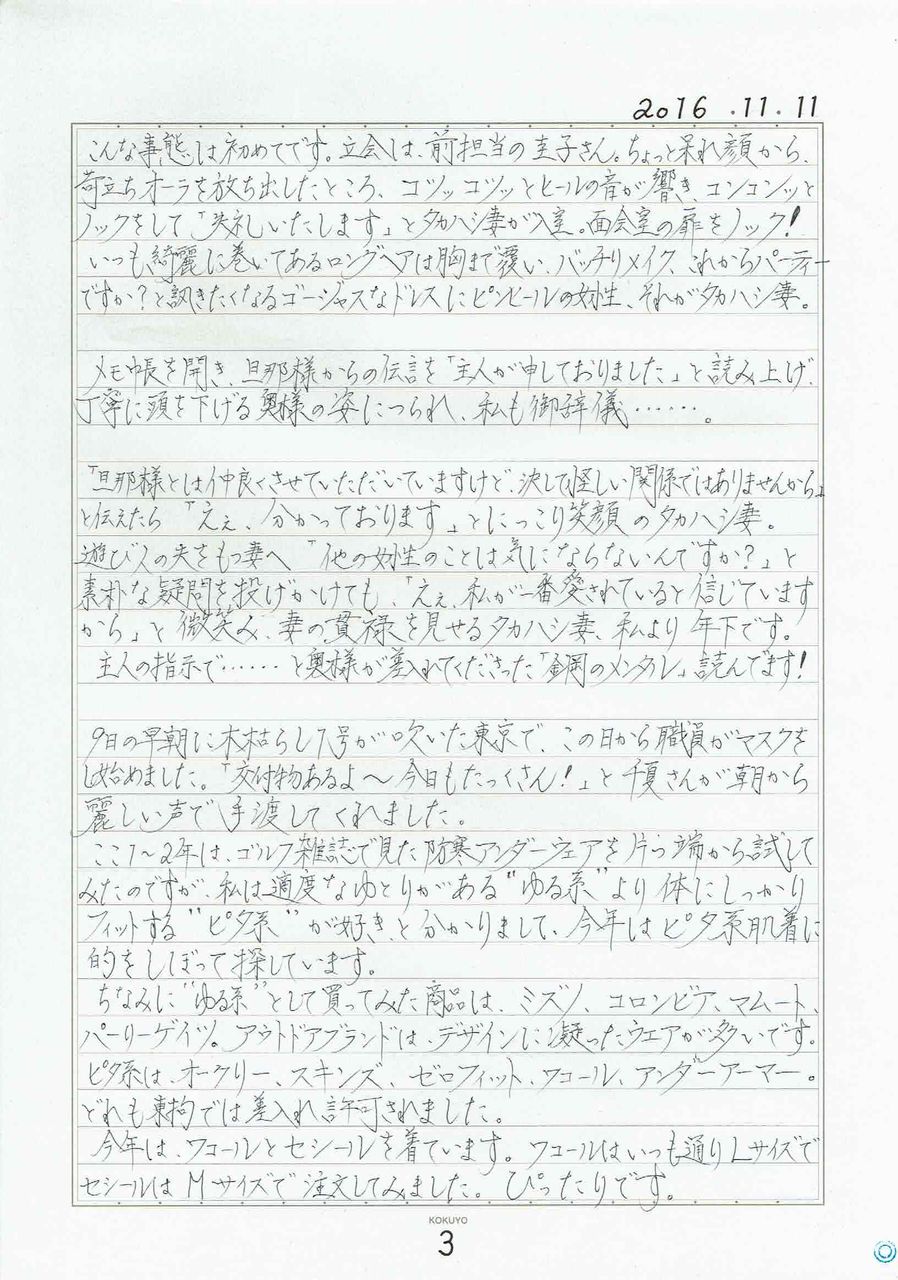 2016.11.11
こんな事態は初めてです。立会は、前担当の圭子さん。ちょっと呆れ顔から、
苛立ちオーラを放ち出したところ、コツッコツッとヒールの音が響き、コンコンッと
ノックをして「失礼いたします」とタカハシ妻が入室。面会室の扉をノック!
いつも綺麗に巻いてあるロングヘアは胸まで覆い、バッチリメイク、これからパーティー
ですか?と訊きたくなるゴージャスなドレスにピンヒールの女性、それがタカハシ妻。
メモ帳を開き、旦那様からの伝言を「主人が申しておりました」と読み上げ、
丁寧に頭を下げる奥様の姿につられ、私も御辞儀……。
「旦那様とは仲良くさせていただいていますけど、決して怪しい関係ではありませんから」
と伝えたら「えぇ、分かっております」とにっこり笑顔のタカハシ妻。
遊び人の夫をもつ妻へ「他の女性のことは気にならないんですか?」と
素朴な疑問を投げかけても、「えぇ、私が一番愛されていると信じています
から」と微笑み、妻の貫禄を見せるタカハシ妻、私より年下です。
主人の指示で……と奥様が差入れてくださった「金剛のメンタル」読んでます!
9日の早朝に木枯らし1号が吹いた東京で、この日から職員がマスクを
し始めました。「交付物あるよ〜今日もたっくさん!」と千夏さんが朝から
麗しい声で手渡してくれました。
ここ1〜2年は、ゴルフ雑誌で見た防寒アンダーウェアを片っ端から試して
みたのですが、私は適度なゆとりがある"ゆる系"より体にしっかり
フィットする"ピタ系"が好き、と分かりまして、今年はピタ系肌着に
的をしぼって探しています。
ちなみに"ゆる系"として買ってみた商品は、ミズノ、コロンビア、マムート、
パーリーゲイツ。アウトドアブランドは、デザインに凝ったウェアが多いです。
ピタ系は、オークリー、スキンズ、ゼロフィット、ワコール、アンダーアーマー。
どれも東拘では差入れ許可されました。
今年は、ワコールとセシールを着ています。ワコールはいつも通りLサイズで
セシールはMサイズで注文してみました。ぴったりです。
KOKUYO
3